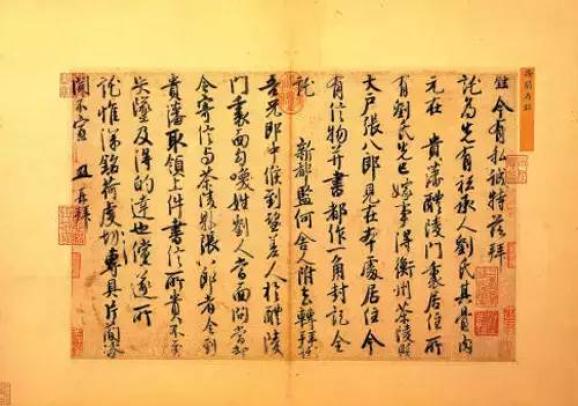 今有私誠特茲拜
託為先有祗承人劉氏其骨肉
元在 貴藩醴陵門裏居住所
有劉氏先已嫁事得衡州茶陵縣
大户張八郎見在本處居住今
有信物并書都作一角封記全
託 新都監何舍人附去轉拜託
吾兄郎中候到望差人於醴陵
門裏面勾喚姓劉人當面問當却
令寄信與茶陵縣張八郎者令到
貴藩取領上件書信所貴不至
失墜及得的達也儻遂所
託惟深銘荷虔切專具片簡咨
聞不宣 再拜